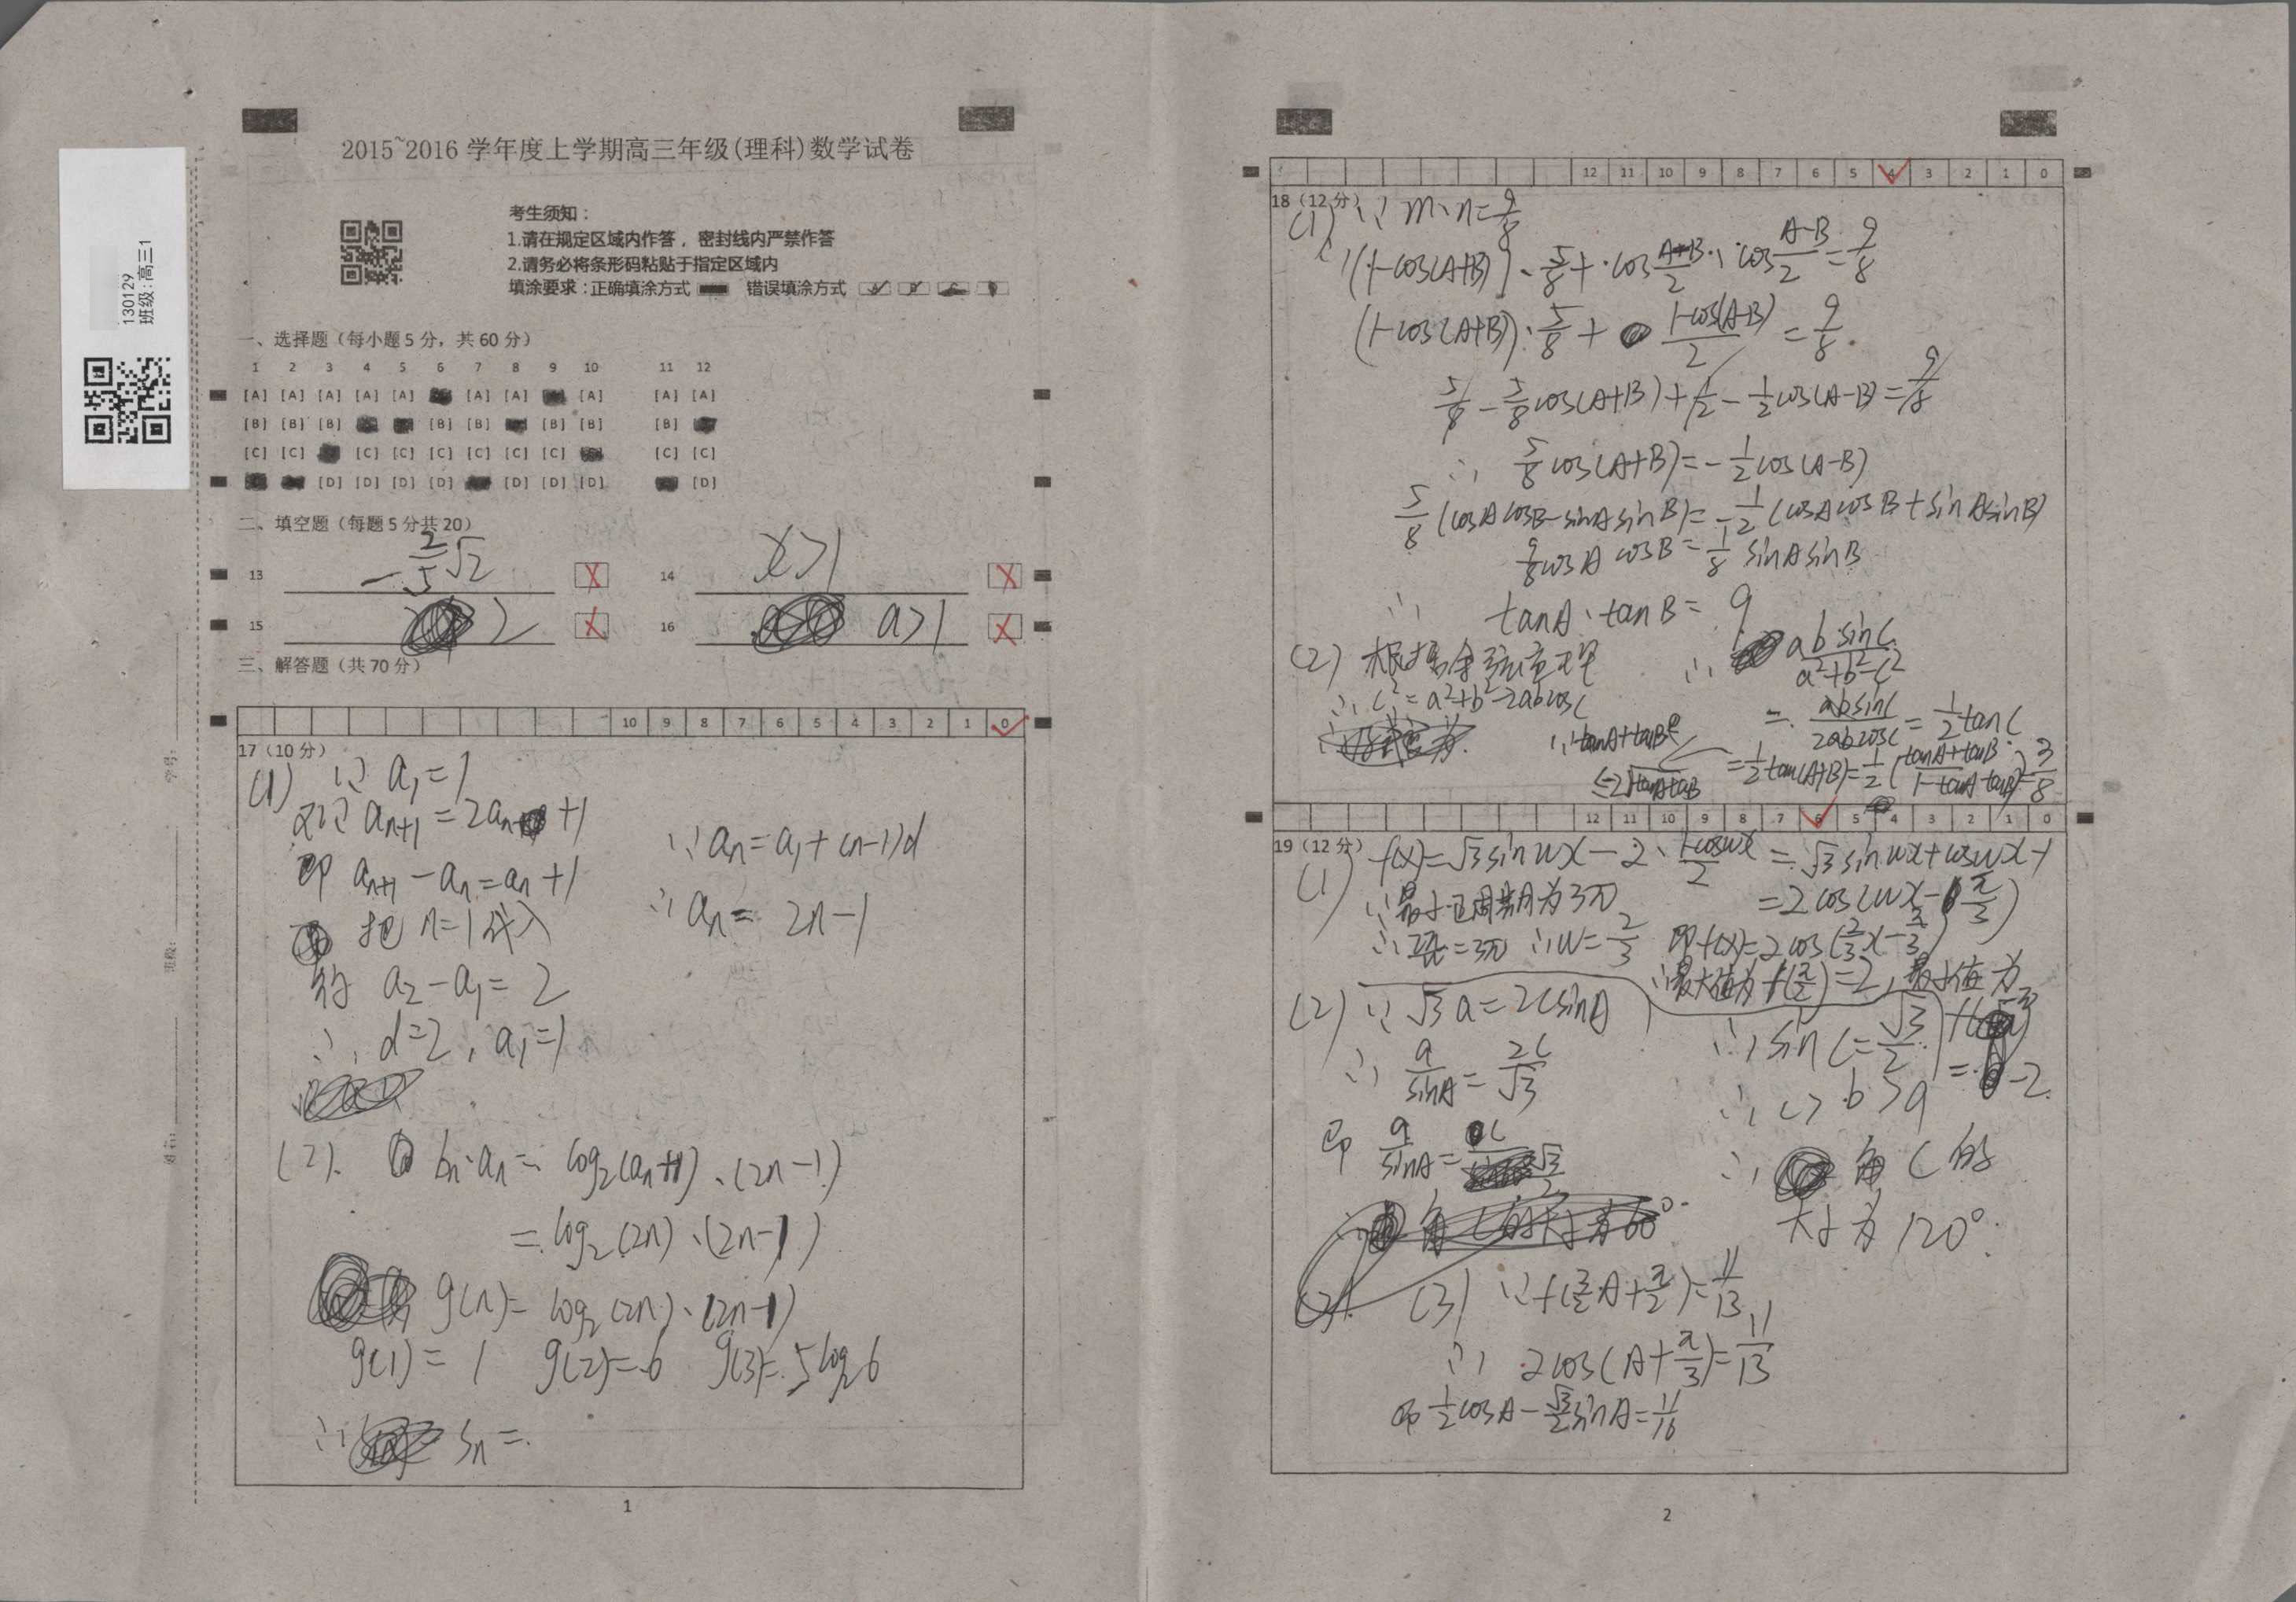 2015~2016 学年度上学期高三年级(理科)数学试卷
130129
班级:高三1
考生须知：
1.请在规定区域内作答，密封线内严禁作答
2.请务必将条形码粘贴于指定区域内
填涂要求：正确填涂方式 错误填涂方式
一、选择题（每小题 5 分，共 60 分）
1 2 3 4 5 6 7 8 9 10 11 12
[A] [A] [A] [A] [A] [A] [A] [A] [A] [A]
[B] [B] [B] [B] [B] [B] [B] [B]
[C] [C] [C] [C] [C] [C] [C] [C] [C] [C]
[D] [D] [D] [D] [D] [D] [D] [D]
二、填空题（每题 5 分共 20）
13 -2/5√2 14 x>1
15 2 16 a>1
三、解答题（共 70 分）
10 9 8 7 6 5 4 3 2 1 0
17（10 分）
(1) ∵ a₁=1
又∵ aₙ₊₁=2aₙ+1
即 aₙ₊₁-aₙ=aₙ+1
把 n=1代入
得 a₂-a₁=2
∴ d=2, a₁=1
∵ aₙ=a₁+(n-1)d
∴ aₙ= 2n-1
(2). bₙ·aₙ= log₂(aₙ+1)·(2n-1)
= log₂(2n)·(2n-1)
g(n)= log₂(2n)·(2n-1)
g(1)= 1 g(2)=6 g(3)=5log₂6
∴ Sₙ=
1
学号:
班级:
姓名:
12 11 10 9 8 7 6 5 4 3 2 1 0
18（12 分）
(1) ∵ m·n=9/8
(1-cos(A+B))·5/8+cos(A+B)/2·cos(A-B)/2=9/8
(1-cos(A+B))·5/8+(1-cos(A-B))/2=9/8
5/8-5/8cos(A+B)+1/2-1/2cos(A-B)=9/8
∴ 5/8cos(A+B)=-1/2cos(A-B)
5/8(cosAcosB-sinAsinB)=-1/2(cosAcosB+sinAsinB)
9/8cosAcosB=1/8sinAsinB
∴ tanA·tanB=9
(2) 根据余弦定理
∴ c²=a²+b²-2abcosC
∴ ab sinC/(a²+b²-c²)
=absinC/2abcosC=1/2tanC
∵ tanA+tanB
≤-2√tanAtanB
=1/2tan(A+B)=1/2((tanA+tanB)/(1-tanAtanB))=3/8
12 11 10 9 8 7 6 5 4 3 2 1 0
19（12 分）
(1) f(x)=√3sinwx-2·(1-coswx)/2=√3sinwx+coswx-1
=2cos(wx-π/3)
∵最小正周期为3π
∴ 2π/w=3π ∴w=2/3 即f(x)=2cos(2/3x-π/3)
∴最大值为f(π/2)=2, 最小值为
=-2.
(2) ∵ √3a=2csinA
∴ a/sinA=2c/√3
即 a/sinA=c/(√3/2)
∴ sinC=√3/2
∴ c>b>a
∴ 角C的
大小为120°.
(3) ∵f(3/2A+π/2)=11/13
∴ 2cos(A+π/3)=11/13
即1/2cosA-√3/2sinA=11/16
2